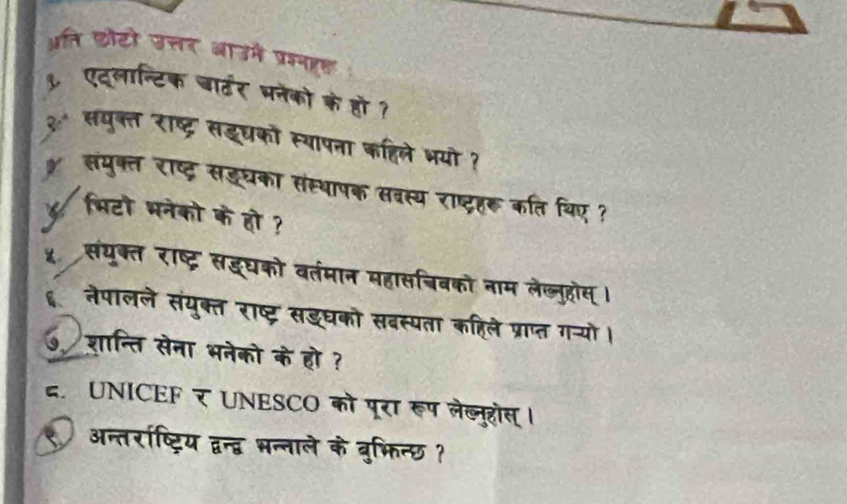 अति छोटो उत्तर आउने प्रश्नहरू
१. एट्लान्टिक चार्टर भनेको के हो ?
२. संयुक्त राष्ट्र सङ्घको स्थापना कहिले भयो ?
संयुक्त राष्ट्र सङ्घका संस्थापक सदस्य राष्ट्रहरू कति थिए ?
भिटो भनेको के हो ?
५ संयुक्त राष्ट्र सङ्घको वर्तमान महासचिवको नाम लेख्नुहोस् ।
६. नेपालले संयुक्त राष्ट्र सङ्घको सदस्यता कहिले प्राप्त गर्‍यो ।
७. शान्ति सेना भनेको के हो ?
८. UNICEF र UNESCO को पूरा रूप लेख्नुहोस् ।
९. अन्तर्राष्ट्रिय द्वन्द्व भन्नाले के बुझिन्छ ?